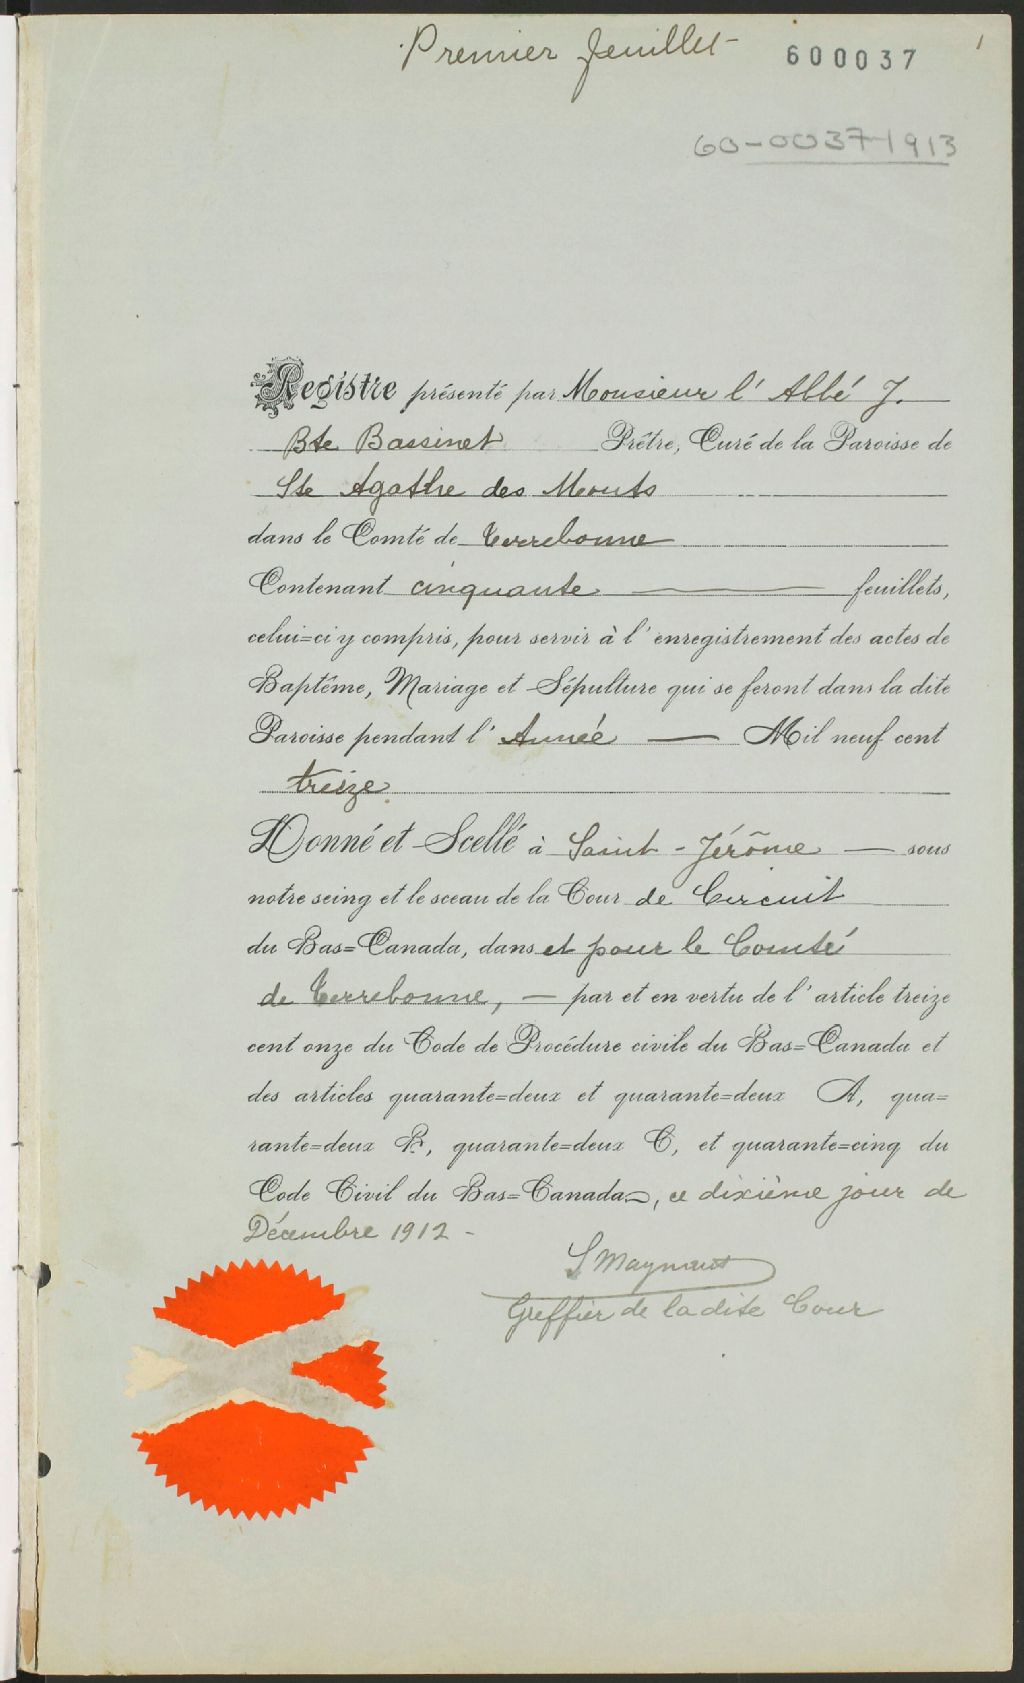 Premier feuillet
600037
1
60-0037-1913
Registre présenté par Monsieur l' Abbé J.
Bte Bassinet Prêtre, Curé de la Paroisse de
Ste Agathe des Monts
dans le Comté de Terrebonne
Contenant cinquante feuillets,
celui=ci y compris, pour servir à l'enregistrement des actes de
Baptême, Mariage et Sépulture qui se feront dans la dite
Paroisse pendant l' Année — Mil neuf cent
treize
Donné et Scellé à Saint-Jérôme — sous
notre seing et le sceau de la Cour de Circuit
du Bas=Canada, dans et pour le Comté
de Terrebonne, — par et en vertu de l'article treize
cent onze du Code de Procédure civile du Bas=Canada et
des articles quarante=deux et quarante=deux A, qua=
rante=deux B, quarante=deux C, et quarante=cinq du
Code Civil du Bas=Canada, ce dixième jour de
Décembre 1912 -
Greffier de la dite Cour